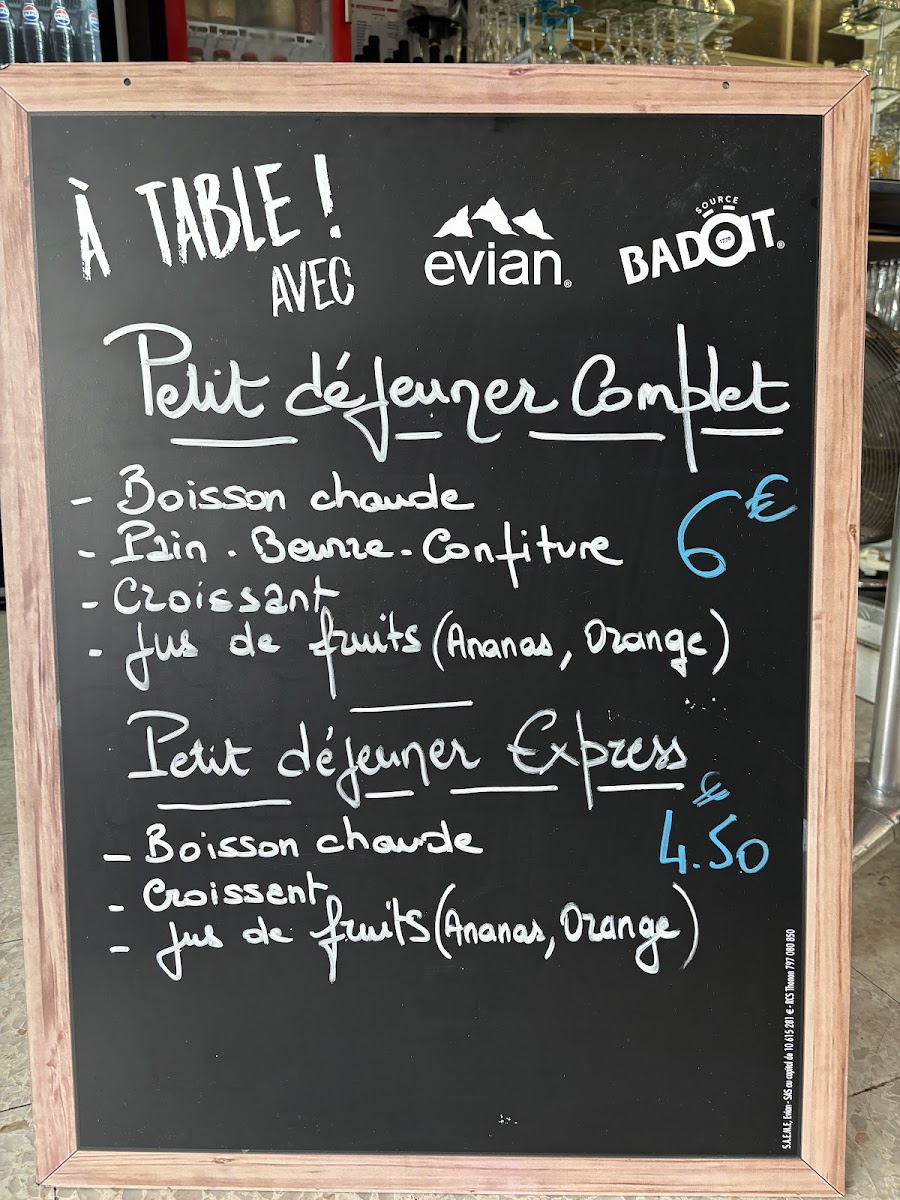 À TABLE !
AVEC
evian®
SOURCE
BADOIT®
1778
Petit déjeuner Complet
- Boisson chaude
- Pain . Beurre - Confiture
6€
- Croissant
- Jus de fruits (Ananas, Orange)
Petit déjeuner Express
- Boisson chaude
4.50€
- Croissent
- Jus de fruits (Ananas, Orange)
S.A.E.M.E, Evian - SAS au capital de 10 615 281 € - RCS Thonon 797 080 850